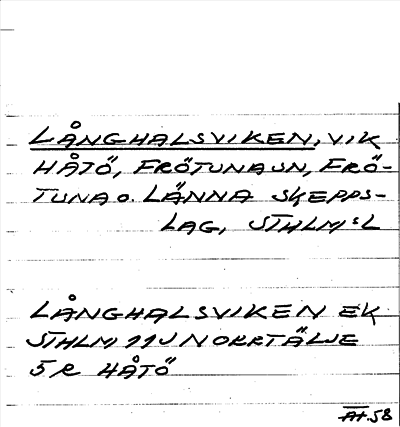 LÅNGHALSVIKEN, VIK
HÅTÖ, FRÖTUNA SN, FRÖ-
TUNA O. LÄNNA SKEPPS-
LAG, STHLM:S L
LÅNGHALSVIKEN EK
STHLM 11J NORRTÄLJE
5 R HÅTÖ
AH. 58